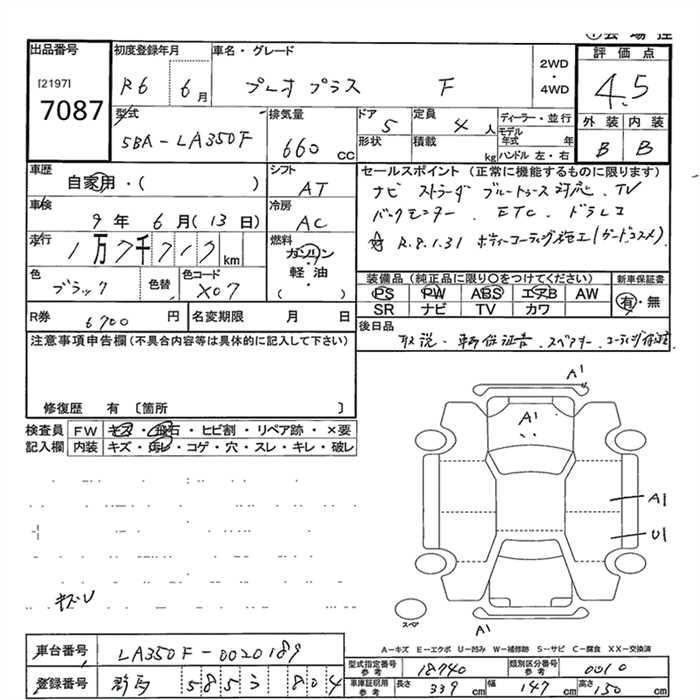 出品番号 初度登録年月 車名・グレード 2WD・4WD 評価点
[2197] 7087
R6 6月 プレオプラス F 4.5
型式 5BA-LA350F
排気量 660 CC
ドア 5 定員 4 人
形状 積載 kg
ディーラー・並行
モデル年式 年
ハンドル 左・右
外装 内装
B B
車歴 自家用・( )
シフト AT
セールスポイント (正常に機能するものに限ります)
ナビ ストラーダ ブルートゥース対応、TV
バックモニター、ETC、ドラレコ
R.8.1.31 ボディーコーティング施工(ガードコスメ)
車検 9年 6月(13日)
冷房 AC
走行 1万7千717km
燃料 ガソリン 軽油 ( )
色 ブラック 色替 色コード X07
装備品 (純正品に限り○をつけてください) 新車保証書
PS PW ABS エアB AW 有・無
SR ナビ TV カワ
R券 6700円 名変期限 月 日
後日品
取説・車両保証書、スペアキー、コーティング保証
注意事項申告欄(不具合内容等は具体的に記入して下さい)
修復歴 有 〔箇所 〕
検査員 FW キズ・飛石・ヒビ割・リペア跡・×要
記入欄 内装 キズ・汚レ・コゲ・穴・スレ・キレ・破レ
A1
A1
A1
U1
キズU
スペア
A1
A-キズ E-エクボ U-凹み W-補修跡 S-サビ C-腐食 XX-交換済
車台番号 LA350F-0020189
型式指定番号 参考 18740 類別区分番号 参考 0010
登録番号 群馬 585 ラ 804
車庫証明用 参考 長さ 339cm 幅 147cm 高さ 150cm